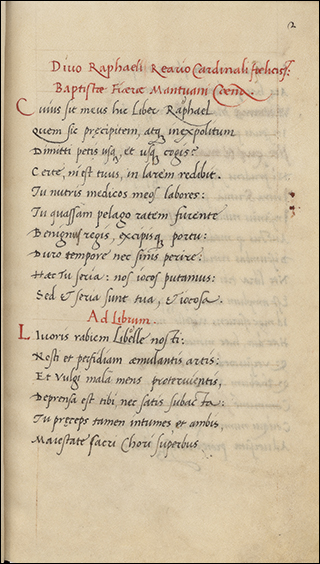 2
Divo Raphaeli Reario Cardinali fœlicisſ:
Baptistæ Fiæræ Mantuani Coena.
Cuius sit meus hic Liber Raphael
Quem sic præcipitem, atq, inexpolitum
Dimitti petis usq, et usq, ergis?
Certe, ni est tuus, in larem redibit.
Tu nutris medicos meos labores:
Tu quassam pelago ratem furente
Benignus regis, excipisq, portu:
Duro tempore nec sinis perire:
Hæc Tu seria: nos iocos putamus:
Sed & seria sunt tua, & iocosa.
Ad Librum.
Livoris rabiem Libelle nosti:
Nosti et perfidiam æmulantis artis:
Et Vulgi mala mens protervientis,
Deprensa est tibi, nec satis subacta:
Tu præceps tamen intumes et ambis,
Maiestate sacri Chori superbus.